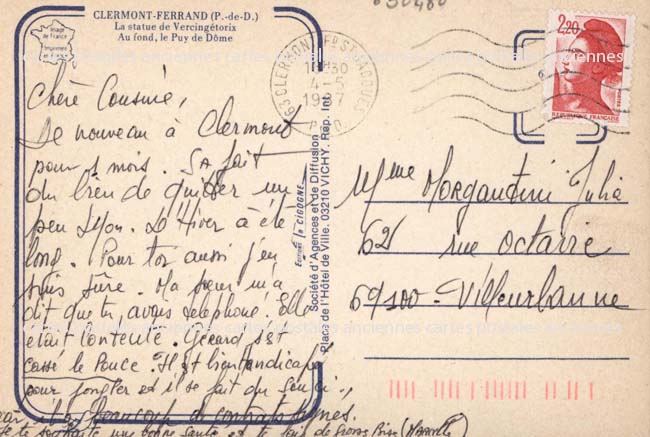 CLERMONT-FERRAND (P.-de-D.)
La statue de Vercingétorix
Au fond, le Puy de Dôme
Image de France
030480
63 CLERMONT FD ST JACQUES
16H30
4-5
1987
P. D
2,20
REPUBLIQUE FRANÇAISE
Chère Cousine,
De nouveau à Clermont
pour 1 mois. Sa fait
du bien de quitter un
peu Lyon. L'Hiver a été
long. Pour toi aussi j'en
suis sûre. Ma sœur m'a
dit que tu avais téléphoné. Elle
était contente. Gérard s'est
cassé le Pouce. Il est bien handicapé
pour jongler et il se fait du souci.,
car il a beaucoup de contrats signés.
Je te souhaite une bonne santé et
Editions la CIGOGNE
Société d'Agences et de Diffusion
Place de l'Hôtel de Ville. 03210 VICHY. Rép. Int.
Mme Morgantini Julia
62 rue Octavie
69100 - Villeurbanne
cartes postales anciennes cartes postales anciennes